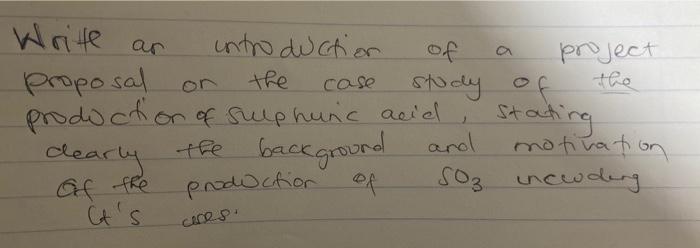 Write an introduction of a project
proposal on the case study of the
production of sulphuric acid, stating
clearly the background and motivation
of the production of SO3 including
it's uses.